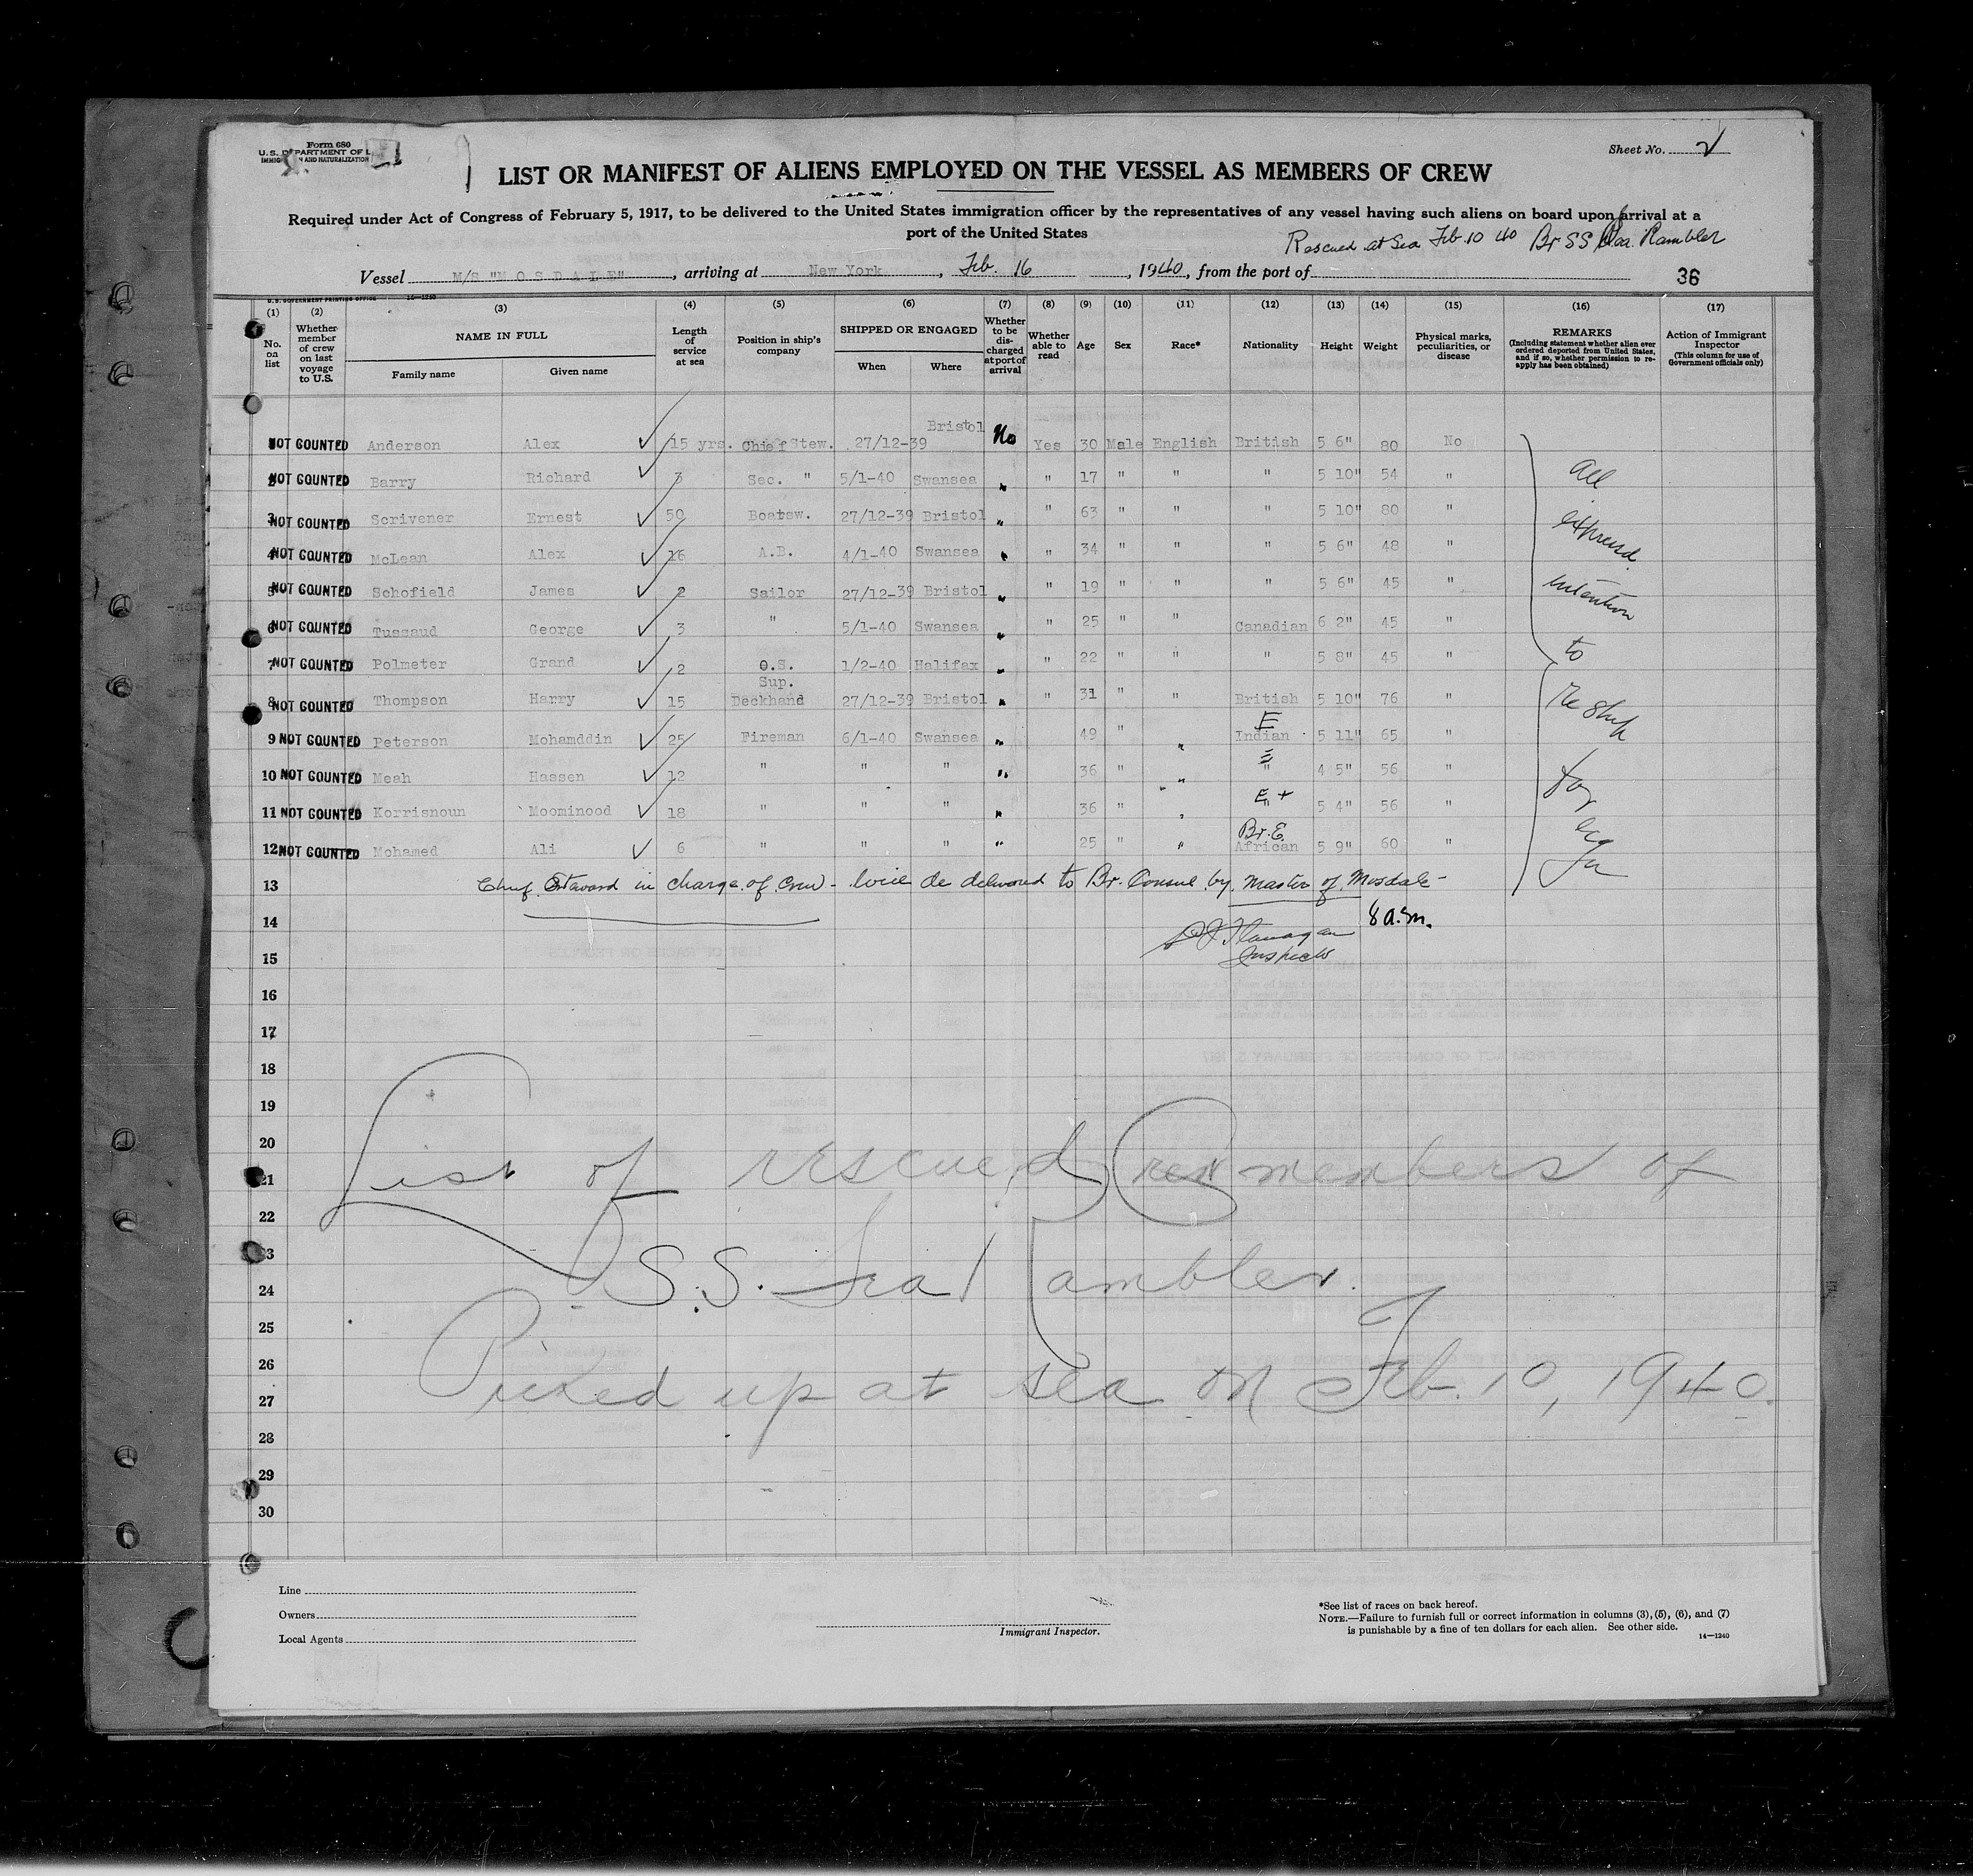 Form 680
U. S. DEPARTMENT OF L
IMMIG N AND NATURALIZATION
Sheet No. 2
LIST OR MANIFEST OF ALIENS EMPLOYED ON THE VESSEL AS MEMBERS OF CREW
Required under Act of Congress of February 5, 1917, to be delivered to the United States immigration officer by the representatives of any vessel having such aliens on board upon arrival at a
port of the United States
Rescued at Sea Feb. 10 40 Br SS Sea Rambler
Vessel M/S "M O S D A L E", arriving at New York, Feb. 16, 1940, from the port of
36
U. S. GOVERNMENT PRINTING OFFICE 14—1240
(1) (2) (3) (4) (5) (6) (7) (8) (9) (10) (11) (12) (13) (14) (15) (16) (17)
No. on list
Whether member of crew on last voyage to U.S.
NAME IN FULL
Family name
Given name
Length of service at sea
Position in ship's company
SHIPPED OR ENGAGED
When
Where
Whether to be discharged at port of arrival
Whether able to read
Age
Sex
Race*
Nationality
Height
Weight
Physical marks, peculiarities, or disease
REMARKS
(Including statement whether alien ever ordered deported from United States, and if so, whether permission to reapply has been obtained)
Action of Immigrant Inspector
(This column for use of Government officials only)
NOT COUNTED Anderson Alex 15 yrs. Chief Stew. 27/12-39 Bristol No Yes 30 Male English British 5 6" 80 No
2 NOT COUNTED Barry Richard 3 Sec. " 5/1-40 Swansea " " 17 " " " 5 10" 54 "
3 NOT COUNTED Scrivener Ernest 50 Boatsw. 27/12-39 Bristol " " 63 " " " 5 10" 80 "
4 NOT COUNTED McLean Alex 16 A.B. 4/1-40 Swansea " " 34 " " " 5 6" 48 "
5 NOT COUNTED Schofield James 2 Sailor 27/12-39 Bristol " " 19 " " " 5 6" 45 "
6 NOT COUNTED Tussaud George 3 " 5/1-40 Swansea " " 25 " " Canadian 6 2" 45 "
7 NOT COUNTED Polmeter Grand 2 O.S. 1/2-40 Halifax " " 22 " " " 5 8" 45 "
8 NOT COUNTED Thompson Harry 15 Sup. Deckhand 27/12-39 Bristol " " 31 " " British 5 10" 76 "
9 NOT COUNTED Peterson Mohamddin 25 Fireman 6/1-40 Swansea " 49 " " E Indian 5 11" 65 "
10 NOT COUNTED Meah Hassen 12 " " " " 36 " " E " 4 5" 56 "
11 NOT COUNTED Korrisnoun Moominood 18 " " " " 36 " " E " 5 4" 56 "
12 NOT COUNTED Mohamed Ali 6 " " " " 25 " " Br. E. African 5 9" 60 "
All
expressed
intention
to
Re ship
for
13 Chief Steward in charge of crew - will be delivered to Br. Consul by Master of Mosdale -
14 8 a.m.
Flanagan
15 Inspector
16
17
18
19
20
21
22
23
24
25
26
27
28
29
30
List of rescued Crew members of
S.S. Sea Rambler.
Picked up at sea on Feb. 10, 1940.
Line
Owners
Local Agents
Immigrant Inspector.
*See list of races on back hereof.
NOTE.—Failure to furnish full or correct information in columns (3), (5), (6), and (7)
is punishable by a fine of ten dollars for each alien. See other side.
14—1240